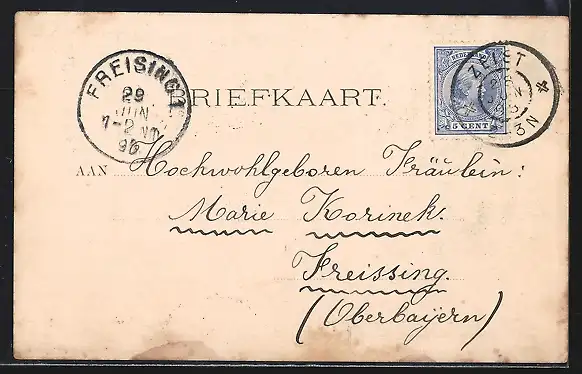 FREISING 1.
29
JUN
1-2 NM
96
BRIEFKAART.
NEDERLAND
5 CENT
ZEIST
AAN Hochwohlgeboren Fräulein:
Marie Korinek.
Freissing.
(Oberbaÿern)